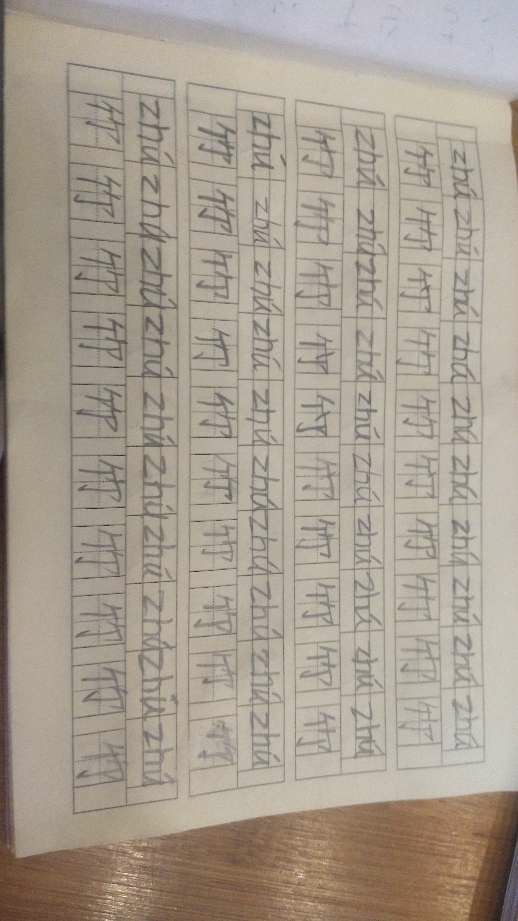 zhú zhú zhú zhú zhú zhú zhú zhú zhú zhú
竹 竹 竹 竹 竹 竹 竹 竹 竹 竹
zhú zhú zhú zhú zhú zhú zhú zhú zhú zhú
竹 竹 竹 竹 竹 竹 竹 竹 竹 竹
zhú zhú zhú zhú zhú zhú zhú zhú zhú zhú
竹 竹 竹 竹 竹 竹 竹 竹 竹 竹
zhú zhú zhú zhú zhú zhú zhú zhú zhú zhú
竹 竹 竹 竹 竹 竹 竹 竹 竹 竹